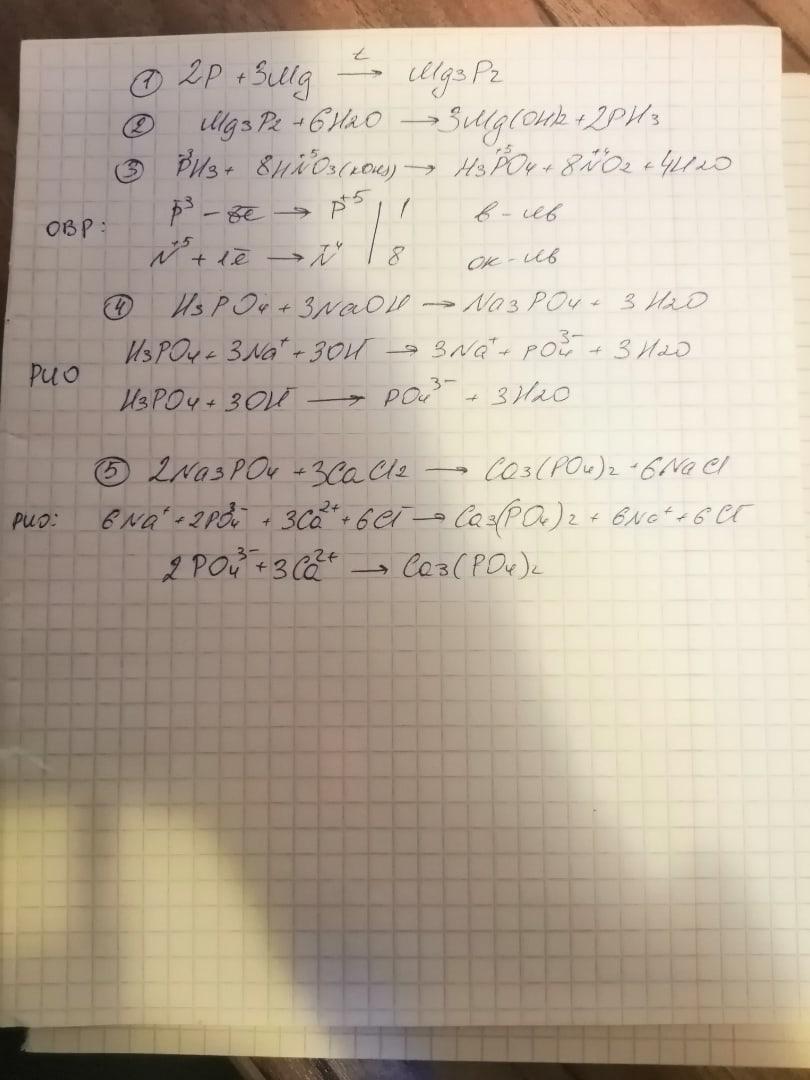 ① 2P + 3Mg →(t) Mg₃P₂
② Mg₃P₂ + 6H₂O → 3Mg(OH)₂ + 2PH₃
③ P⁻³H₃ + 8HN⁺⁵O₃(конц) → H₃P⁺⁵O₄ + 8N⁺⁴O₂ + 4H₂O
ОВР: P⁻³ - 8ē → P⁺⁵ | 1 в-ль
N⁺⁵ + 1ē → N⁺⁴ | 8 ок-ль
④ H₃PO₄ + 3NaOH → Na₃PO₄ + 3H₂O
РИО H₃PO₄ + 3Na⁺ + 3OH⁻ → 3Na⁺ + PO₄³⁻ + 3H₂O
H₃PO₄ + 3OH⁻ → PO₄³⁻ + 3H₂O
⑤ 2Na₃PO₄ + 3CaCl₂ → Ca₃(PO₄)₂ + 6NaCl
РИО: 6Na⁺ + 2PO₄³⁻ + 3Ca²⁺ + 6Cl⁻ → Ca₃(PO₄)₂ + 6Na⁺ + 6Cl⁻
2PO₄³⁻ + 3Ca²⁺ → Ca₃(PO₄)₂